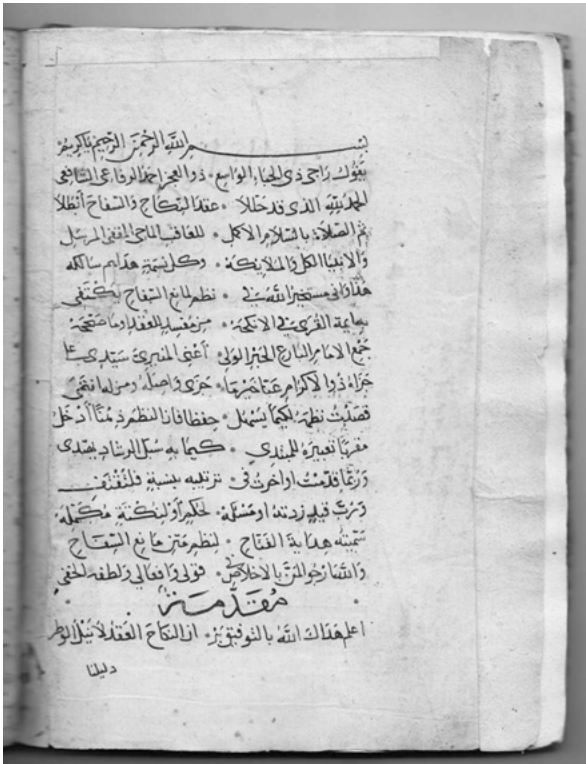 بسم الله الرحمن الرحيم يا كريم
يقول راجي ذي الحباء الواسع ذو العجز احمد الرفاعي الشافعي
الحمد لله الذي قد حللا عقد النكاح والسفاح أبطلا
ثم الصلاة بالسلام الاكمل للعاقب الماحي المقفى المرسل
والانبيا الكل والملايكة وكل نسمة هداهم سالكه
هذا واني مستخير الله في نظم لمانع السفاح يكتفي
في الانكحة من مفسد للعقد وما صححه
جمع الامام البارع الحبر الولي أعني سيدي علي
جزاه ذو الاكرام عنا خيرما جزى واصله ومن له انتمى
فصلت نظمه لكيما يسهل حفظا فان النظم ذهنا أدخل
مقربا تعبيره للمبتدي كيما به سبل الرشاد يهتدى
وربما قدمت او اخرت في ترتيبه بنسبة فلتقتف
ورب قيد زدته او مسئلة لحكم أو لنكتة مكملة
سميته هداية الفتاح لنظم متن مانع السفاح
والله ارجو المن بالاخلاص في قولي وافعالي ولطفه الخفي
مقدمة
اعلم هداك الله بالتوفيق بر ان النكاح العقد لا نيل الوطر
دليلنا